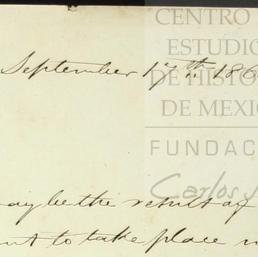 CENTRO
ESTUDIO
DE HISTO
DE MEXIC
FUNDAC
Carlos S
September 17th 186
may be the result of
to take place